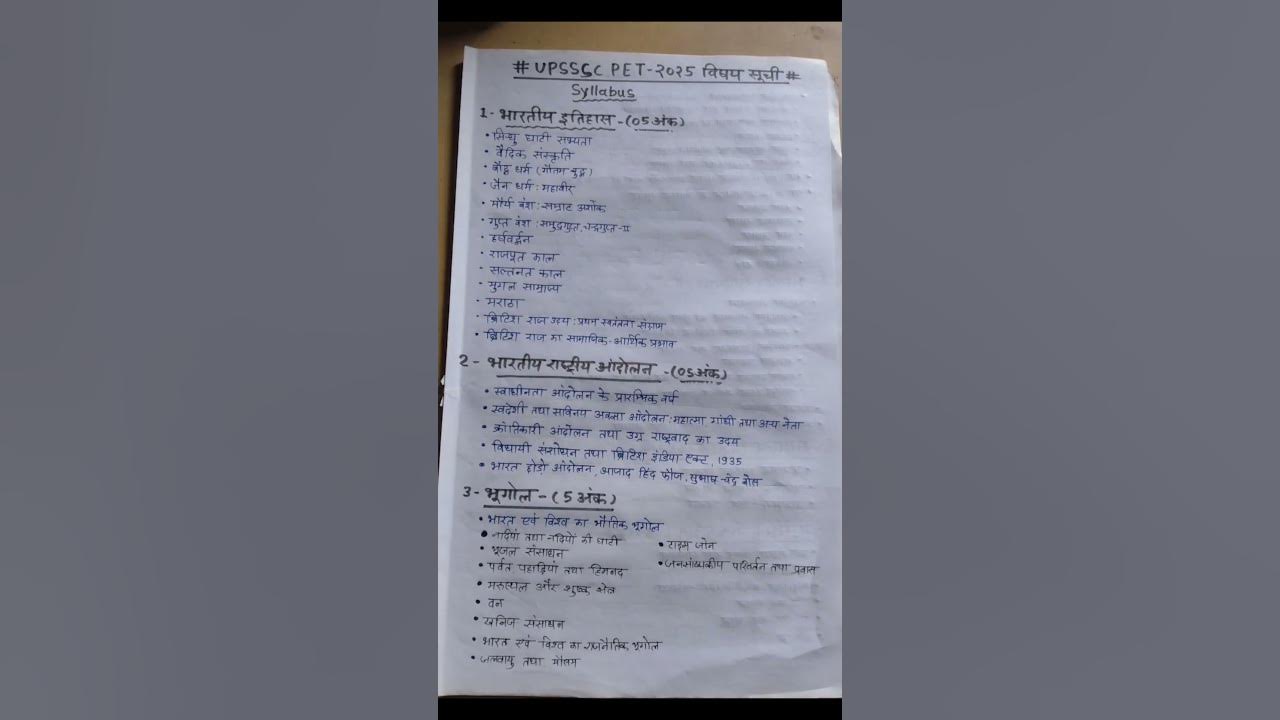 # UPSSSC PET-२०२५ विषय सूची #
Syllabus
1- भारतीय इतिहास -(05अंक)
• सिन्धु घाटी सभ्यता
• वैदिक संस्कृति
• बौद्ध धर्म (गौतम बुद्ध)
• जैन धर्म : महावीर
• मौर्य वंश : सम्राट अशोक
• गुप्त वंश : समुद्रगुप्त, चन्द्रगुप्त-II
• हर्षवर्द्धन
• राजपूत काल
• सल्तनत काल
• मुगल साम्राज्य
• मराठा
• ब्रिटिश राज उदय : प्रथम स्वतंत्रता संग्राम
• ब्रिटिश राज का सामाजिक-आर्थिक प्रभाव
2- भारतीय राष्ट्रीय आंदोलन -(05अंक)
• स्वाधीनता आंदोलन के प्रारम्भिक वर्ष
• स्वदेशी तथा सविनय अवज्ञा आंदोलन : महात्मा गांधी तथा अन्य नेता
• क्रांतिकारी आंदोलन तथा उग्र राष्ट्रवाद का उदय
• विधायी संशोधन तथा ब्रिटिश इंडिया एक्ट, 1935
• भारत छोड़ो आंदोलन, आजाद हिंद फौज, सुभाष चंद्र बोस
3- भूगोल -(5अंक)
• भारत एवं विश्व का भौतिक भूगोल
• नदियां तथा नदियों की घाटी
• भूजल संसाधन
• पर्वत पहाड़ियां तथा हिमनद
• मरुस्थल और शुष्क क्षेत्र
• वन
• खनिज संसाधन
• भारत एवं विश्व का राजनैतिक भूगोल
• जलवायु तथा मौसम
• टाइम जोन
• जनसांख्यकीय परिवर्तन तथा प्रवास